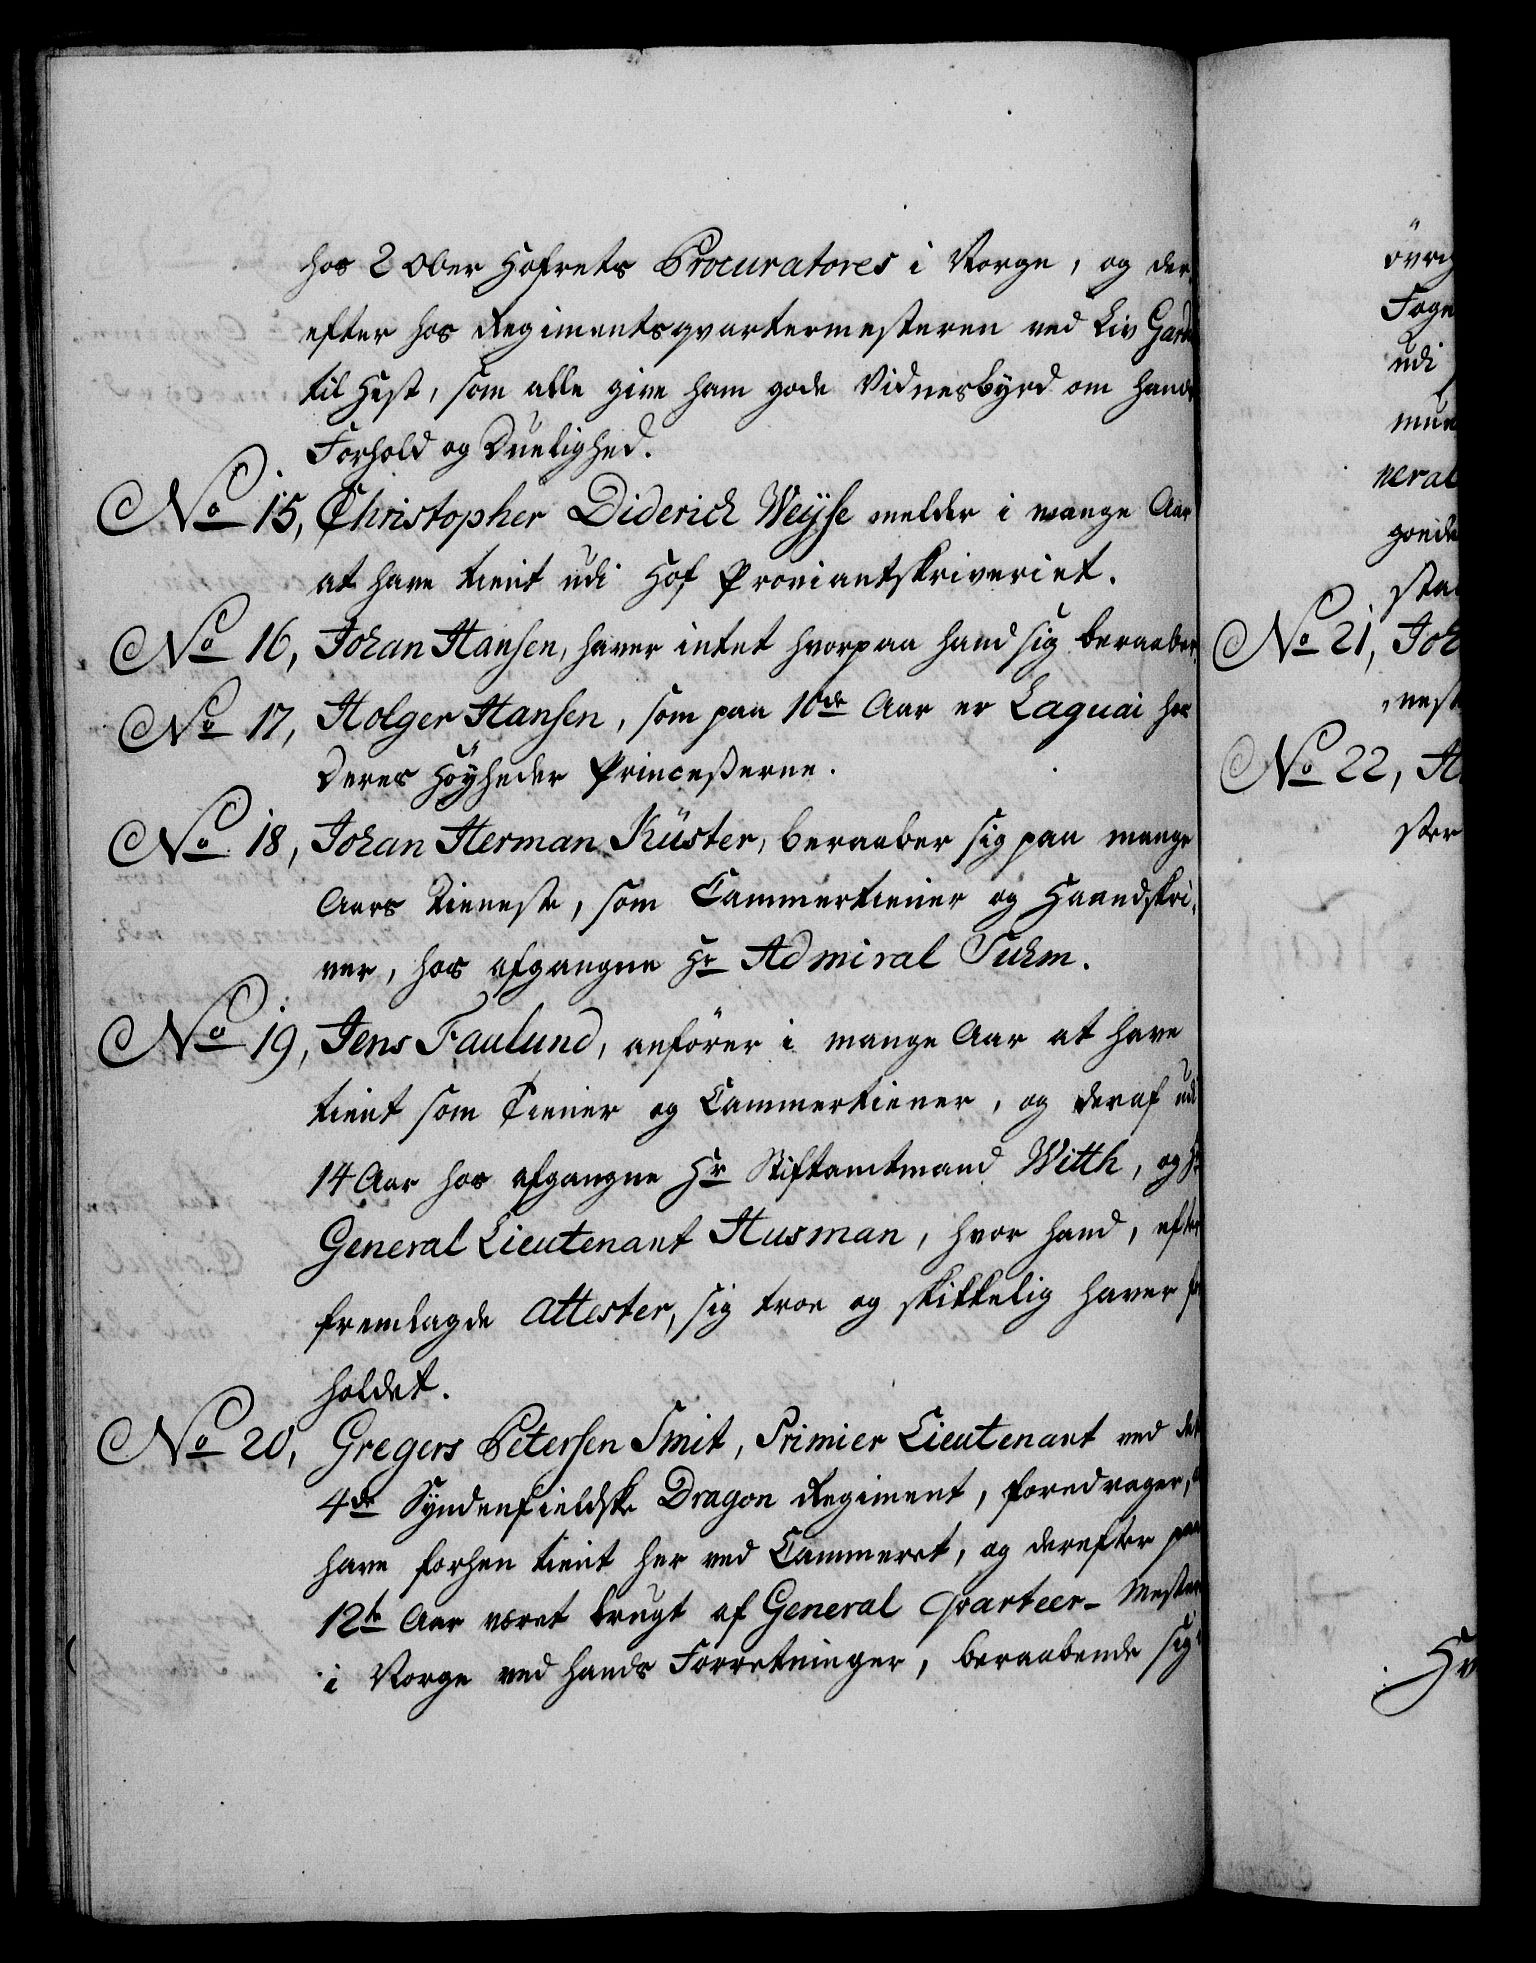 hos 2 Ober Hofrets Procuratores i Norge, og der,
efter hos Regimentsqvartermesteren ved Liv Garde
til Hest, som alle give ham gode Vidnesbyrd om hands
Forhold og Duelighed.
No 15, Christopher Diderich Weyse melder i mange Aar
at have tient udi Hof Proviantskriveriet.
No 16, Johan Hansen, haver intet hvorpaa hand sig beraaber.
No 17, Holger Hansen, som paa 10de Aar er Laquai hos
Deres Höyheder Princesserne.
No 18, Johan Herman Küster, beraaber sig paa mange
Aars Tieneste, som Cammertiener og Haandskri,
ver, hos afgangne Hr Admiral Suhm.
No 19, Jens Faulund, anförer i mange Aar at have
tient som Tiener og Cammertiener, og deraf udi
14 Aar hos afgangne Hr Stiftamtmand Witth, og Hr
General Lieutenant Husman, hvor hand, efter
fremlagde Attester, sig troe og skikkelig haver for
holdet.
No 20, Gregers Petersen Smit, Primier Lieutenant ved det
4de Syndenfieldske Dragon Regiment, foredrager,
have forhen tient her ved Cammeret, og derefter paa
12te Aar været brugt af General Qvarteer- Mesteren
i Norge ved hands Forretninger, beraabende sig
övrig
Foge
udi
mun
neral
stad
No 21, Joh
nest
No 22, H
ster
Hv